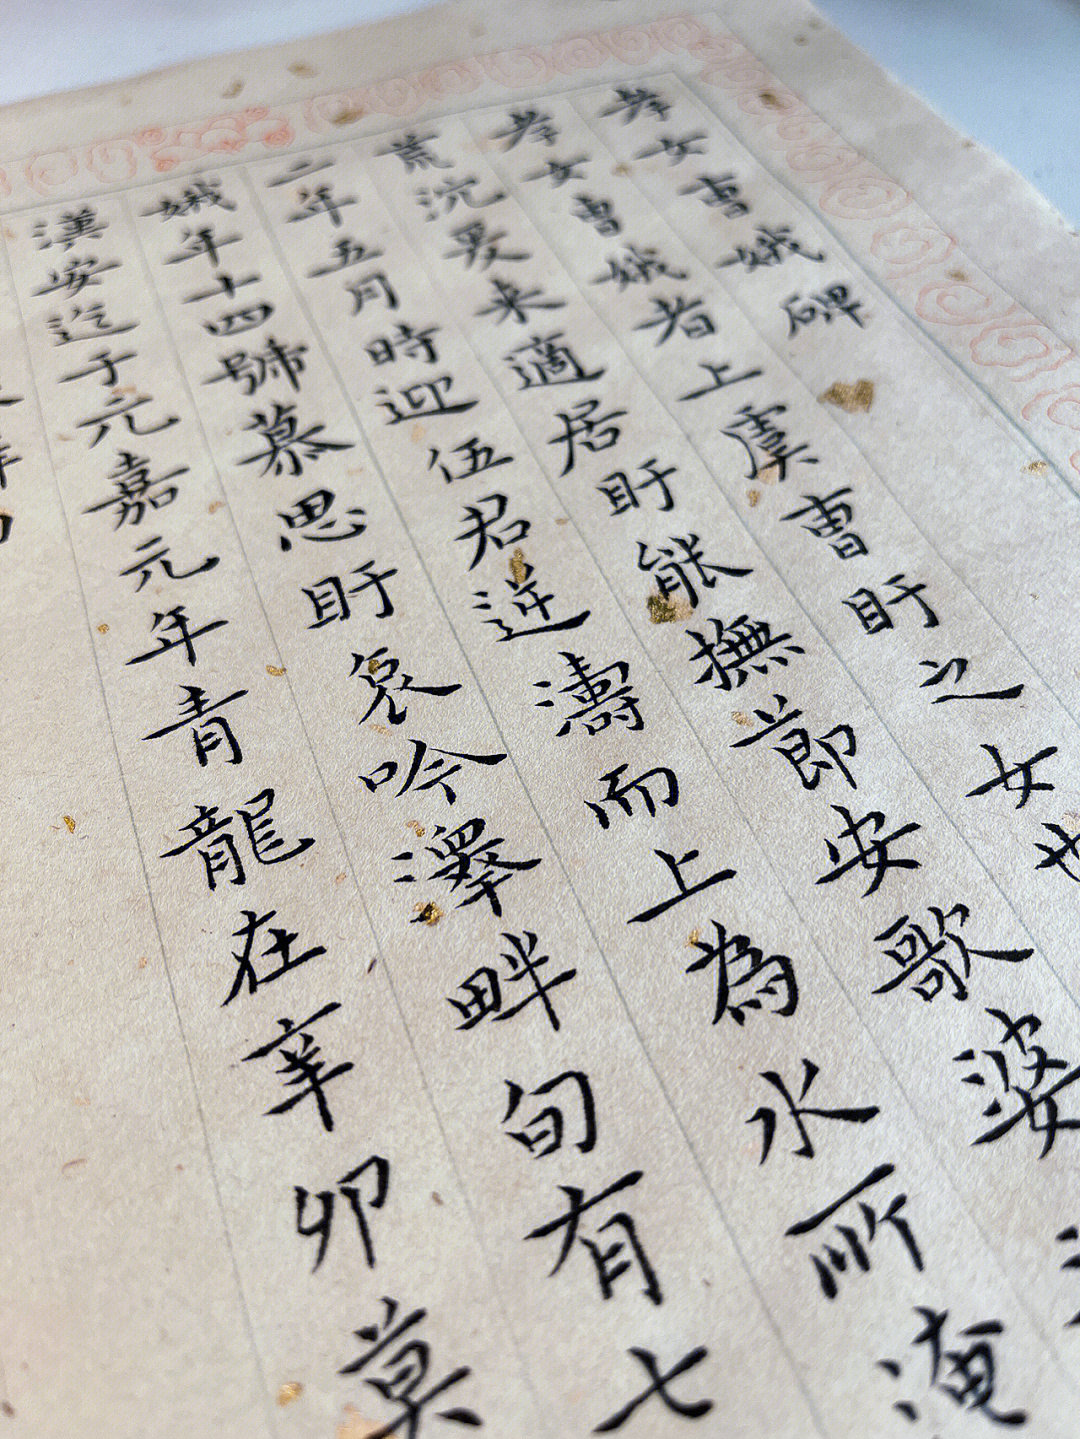 孝女曹娥碑
孝女曹娥者上虞曹盱之女也
荒沉爰来適居盱能撫節安歌婆
二年五月時迎伍君逆濤而上為水所淹
娥年十四號慕思盱哀吟澤畔旬有七
漢安迄于元嘉元年青龍在辛卯莫